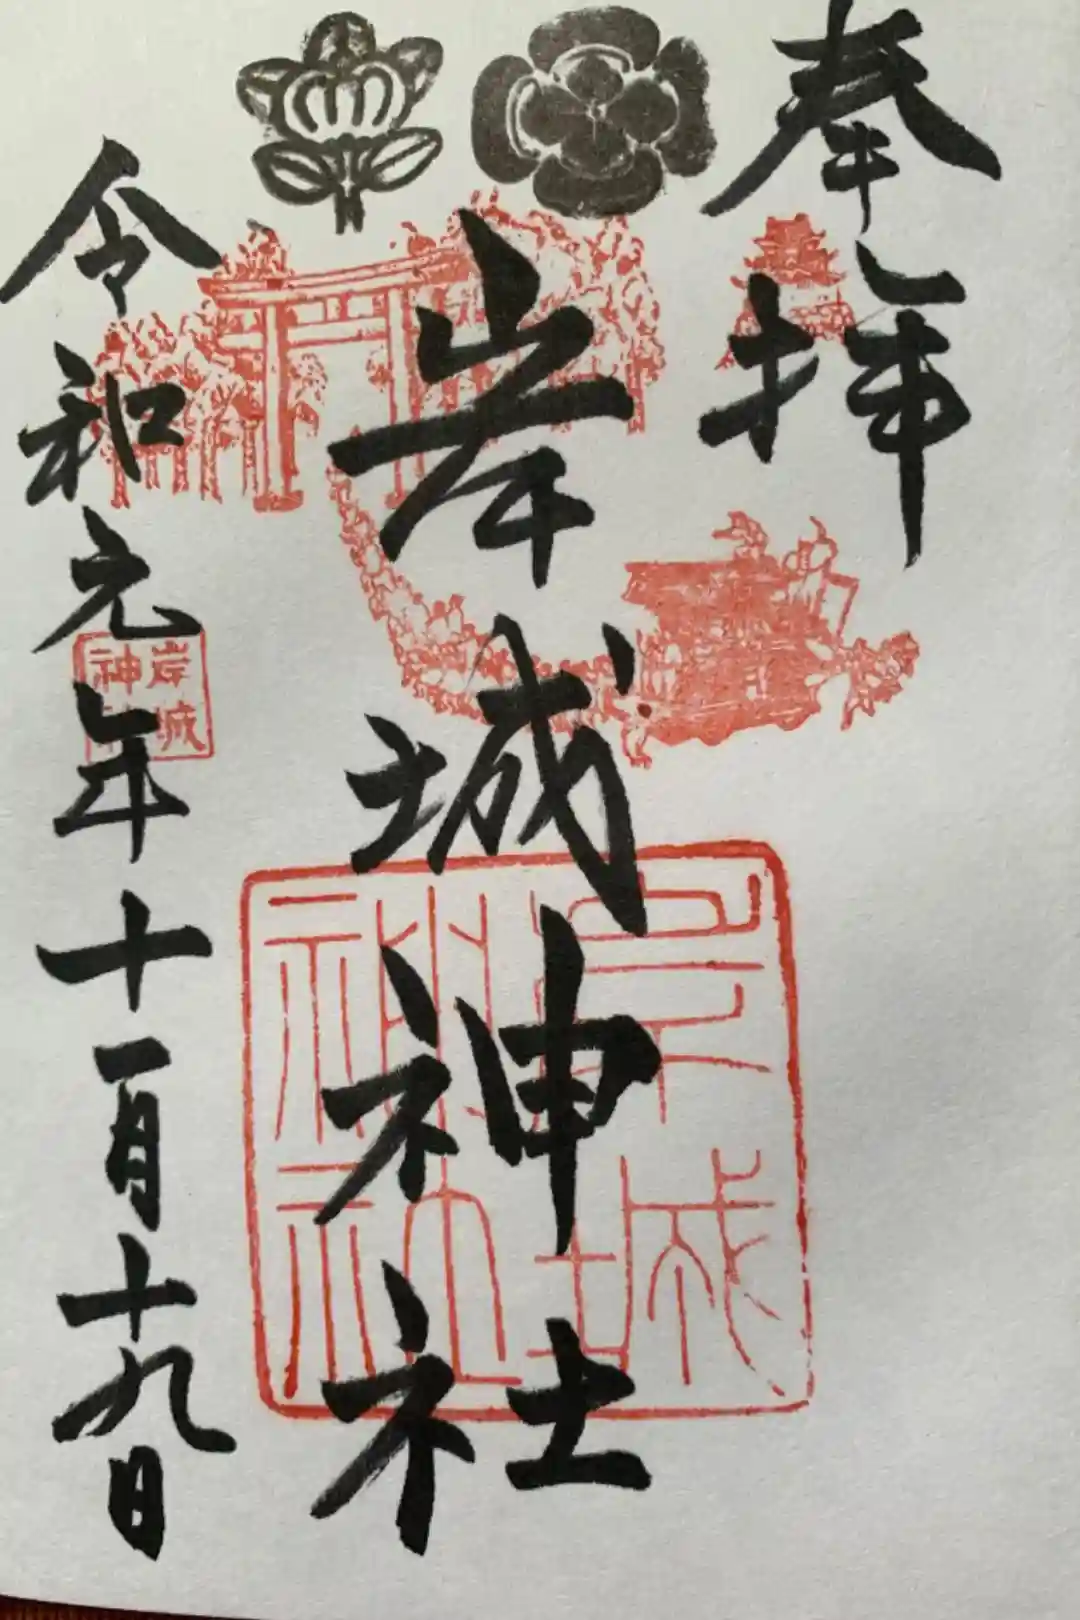 奉拝
岸城神社
岸城神社
令和元年十一月十九日
岸城
神